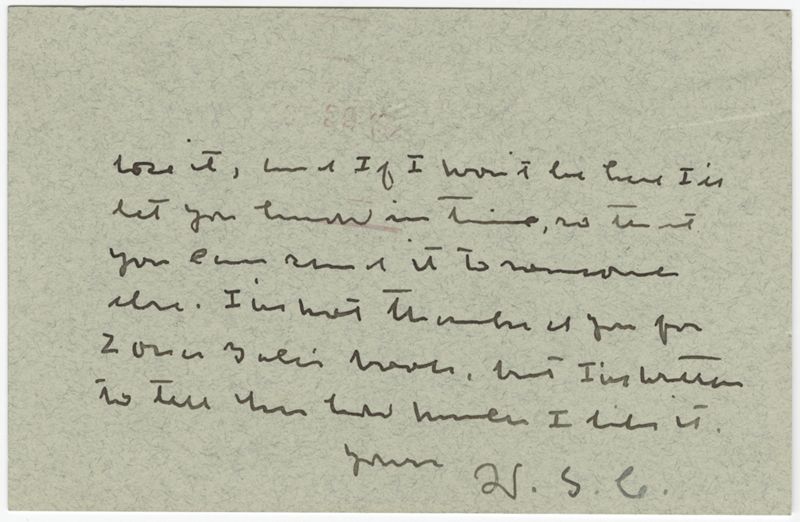 lose it, and If I won't be here I'll
let you know in time, so that
you can send it to someone
else. I've not thanked you for
Zona Gale's book, but I've written
to tell her how much I like it.
Yours W. S. C.